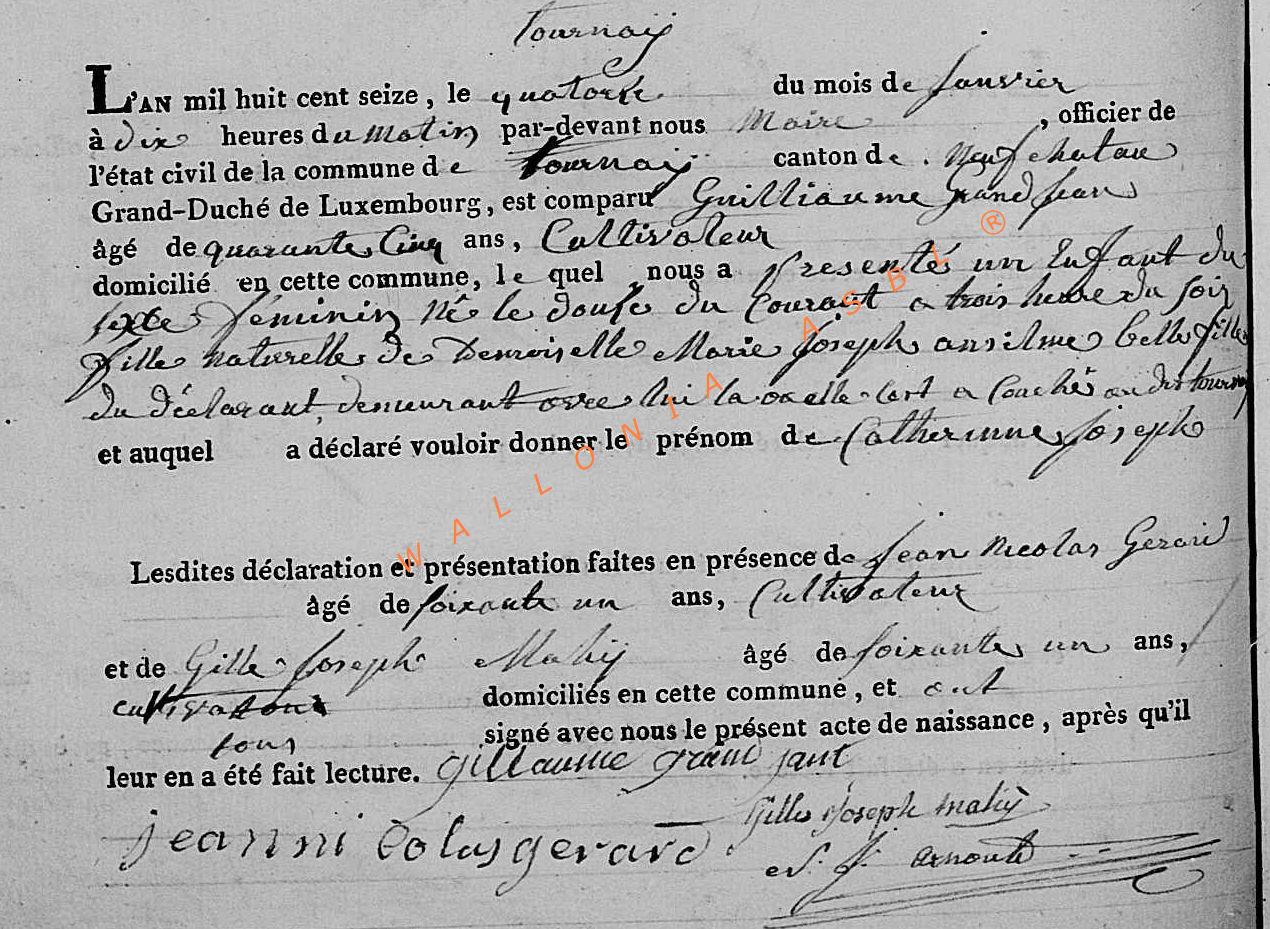 tournay
L'AN mil huit cent seize, le quatorse du mois de Janvier
à dix heures du matin par-devant nous Maire , officier de
l'état civil de la commune de tournay canton de Neufchatau
Grand-Duché de Luxembourg, est comparu Guilliaume Grand Jean
âgé de quarante Cinq ans, Cultivateur
domicilié en cette commune, le quel nous a presentés un Enfant du
sexe feminin Né le douse du Courant a trois heure du soir
fille naturelle de Demoiselle Marie Joseph anselme belle fille
du déclarant, demeurant avec lui laquelle a Couché au dit tournay
et auquel a déclaré vouloir donner le prénom de Catherinne Joseph
Lesdites déclaration et présentation faites en présence de Jean Nicolas Gerard
âgé de soixante un ans, Cultivateur
et de Gille Joseph Mahy âgé de soixante un ans,
cultivateur domiciliés en cette commune, et ont
tous signé avec nous le présent acte de naissance, après qu'il
leur en a été fait lecture. gillaume grand jant
Gilles Joseph mahy
jeanni colas gerard
J. arnould
WALLONIA ASBL ®